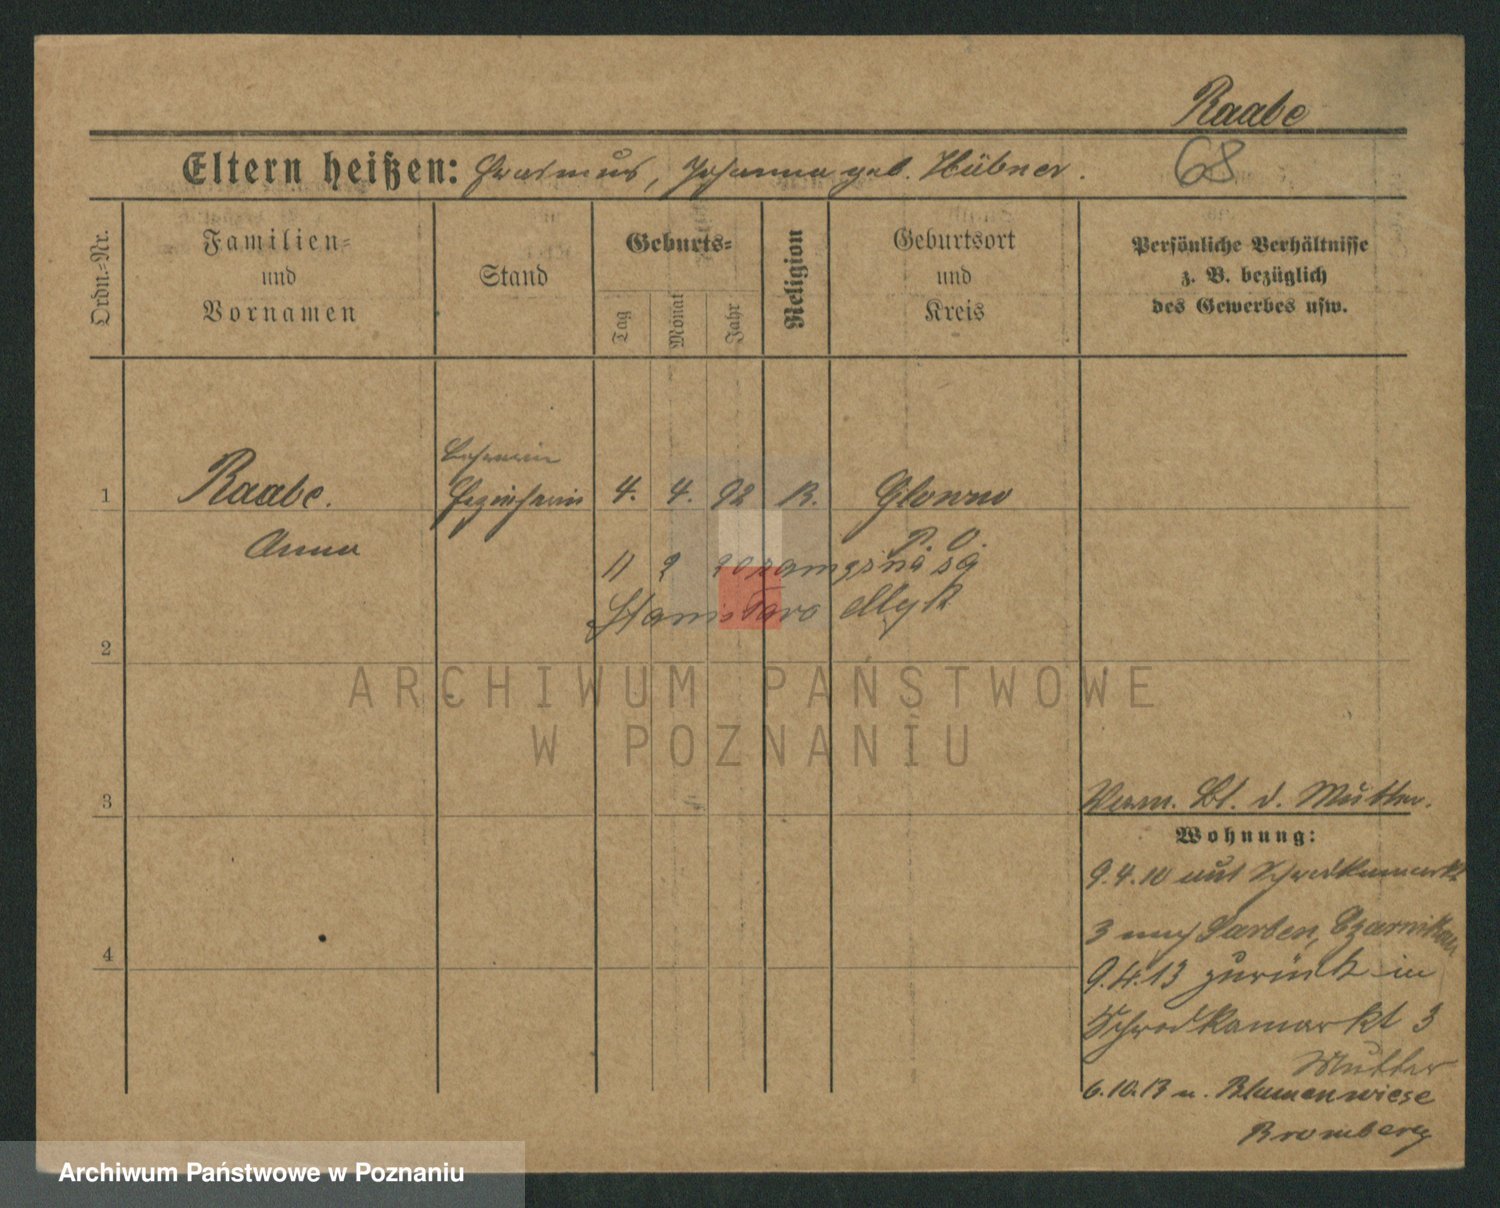 Raabe
68
Eltern heißen: Erasmus, Johanna geb. Hübner.
Ordn.-Nr.
Familien-
und
Vornamen
Stand
Geburts-
Tag
Monat
Jahr
Religion
Geburtsort
und
Kreis
Persönliche Verhältnisse
z. B. bezüglich
des Gewerbes usw.
Lehrerin
1 Raabe. Erzieherin 4. 4. 92 K. Glowno
Anna P. O.
11 2 20 zamęsną są
Stanisław
2
ARCHIWUM PAŃSTWOWE
W POZNANIU
3
Verm. Bl. d. Mutter.
Wohnung:
9.4.10 aus Schrodkamarkt
3 nach Sarben, Czarnikau
4
9.4.13 zurück in
Schrodkamarkt 3
Mutter
6.10.13 n. Blumenwiese
Bromberg
Archiwum Państwowe w Poznaniu